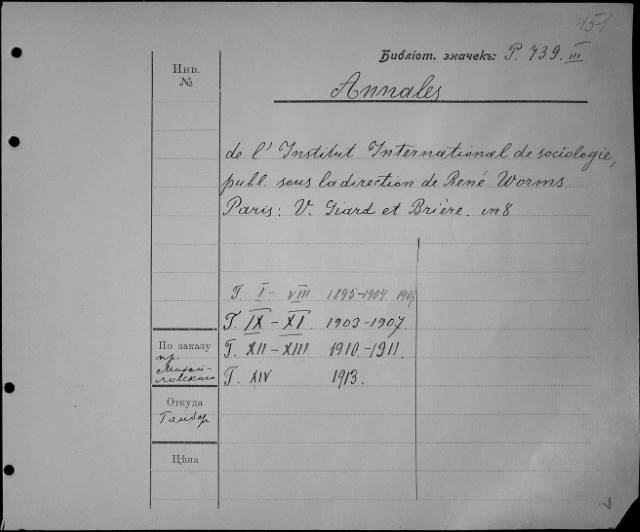 151
Библіот. значекъ: P. 739. III
Инв.
№
Annales
de l' Institut International de sociologie,
publ. sous la direction de René Worms
Paris: V. Giard et Brière. in 8
T. I - VIII 1895-1904. 1907
T. IX - XI. 1903-1907.
T. XII - XIII 1910.-1911.
T. XIV 1913.
По заказу
пр.
Михай-
ловскаго
Откуда
Цѣна